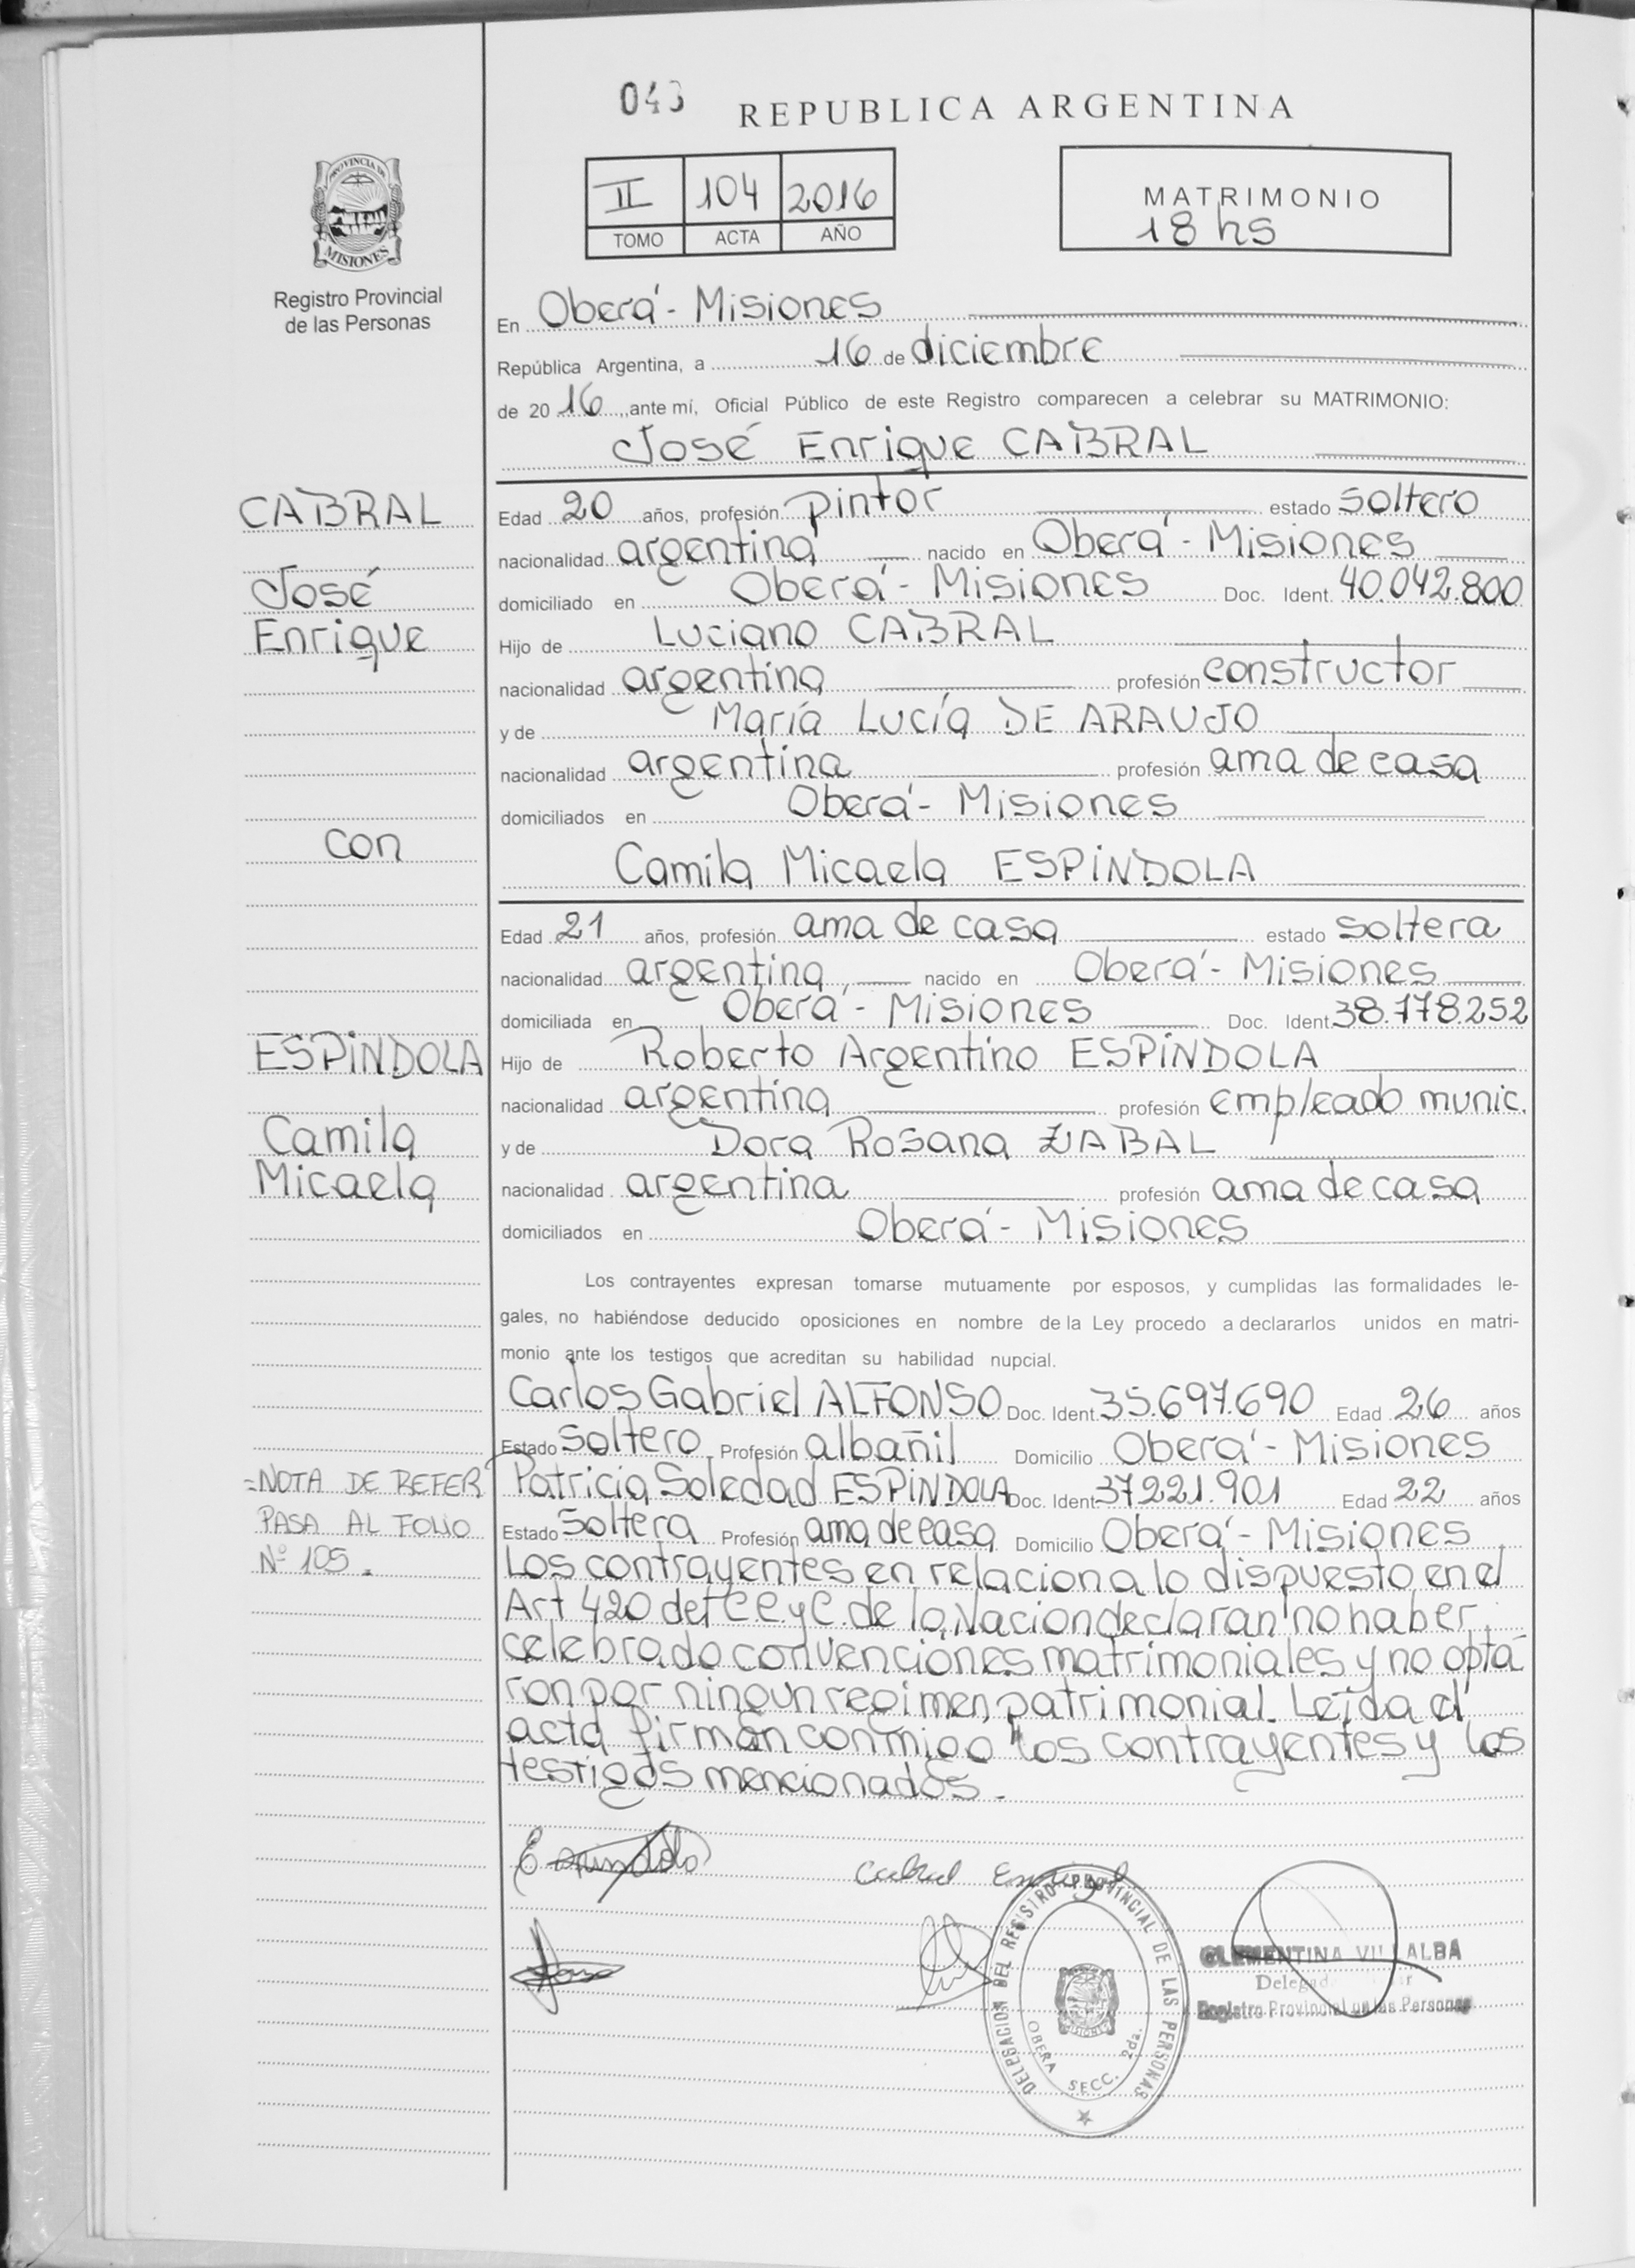 043 REPUBLICA ARGENTINA
PROVINCIA DE
MISIONES
Registro Provincial
de las Personas
II 104 2016
TOMO ACTA AÑO
MATRIMONIO
18 hs
En Oberá - Misiones
República Argentina, a 16 de diciembre
de 20 16, ante mí, Oficial Público de este Registro comparecen a celebrar su MATRIMONIO:
José Enrique CABRAL
CABRAL
José
Enrique
Edad 20 años, profesión pintor estado soltero
nacionalidad argentina nacido en Oberá - Misiones
domiciliado en Oberá - Misiones Doc. Ident. 40.042.800
Hijo de Luciano CABRAL
nacionalidad argentina profesión constructor
y de María Lucía DE ARAUJO
nacionalidad argentina profesión ama de casa
domiciliados en Oberá - Misiones
con
Camila Micaela ESPINDOLA
Edad 21 años, profesión ama de casa estado soltera
nacionalidad argentina nacido en Oberá - Misiones
domiciliada en Oberá - Misiones Doc. Ident. 38.778.252
ESPINDOLA
Camila
Micaela
Hijo de Roberto Argentino ESPINDOLA
nacionalidad argentina profesión empleado munic.
y de Dora Rosana ZABAL
nacionalidad argentina profesión ama de casa
domiciliados en Oberá - Misiones
Los contrayentes expresan tomarse mutuamente por esposos, y cumplidas las formalidades le-
gales, no habiéndose deducido oposiciones en nombre de la Ley procedo a declararlos unidos en matri-
monio ante los testigos que acreditan su habilidad nupcial.
Carlos Gabriel ALFONSO Doc. Ident. 35.697.690 Edad 26 años
Estado Soltero Profesión albañil Domicilio Oberá - Misiones
Patricia Soledad ESPINDOLA Doc. Ident. 37.221.901 Edad 22 años
Estado Soltera Profesión ama de casa Domicilio Oberá - Misiones
=NOTA DE REFER
PASA AL FOLIO
Nº 105.
Los contrayentes en relacion a lo dispuesto en el
Art 420 del C.C y C. de la Nacion declaran no haber
celebrado convenciones matrimoniales y no opta
ron por ningun regimen patrimonial. Leída el
acta firman conmigo los contrayentes y los
testigos mencionados.
Espindola
Cabral Enrique
DELEGACION DEL REGISTRO PROVINCIAL DE LAS PERSONAS
OBERA SECC. 2da.
MISIONES
CLEMENTINA VILLALBA
Registro Provincial de las Personas